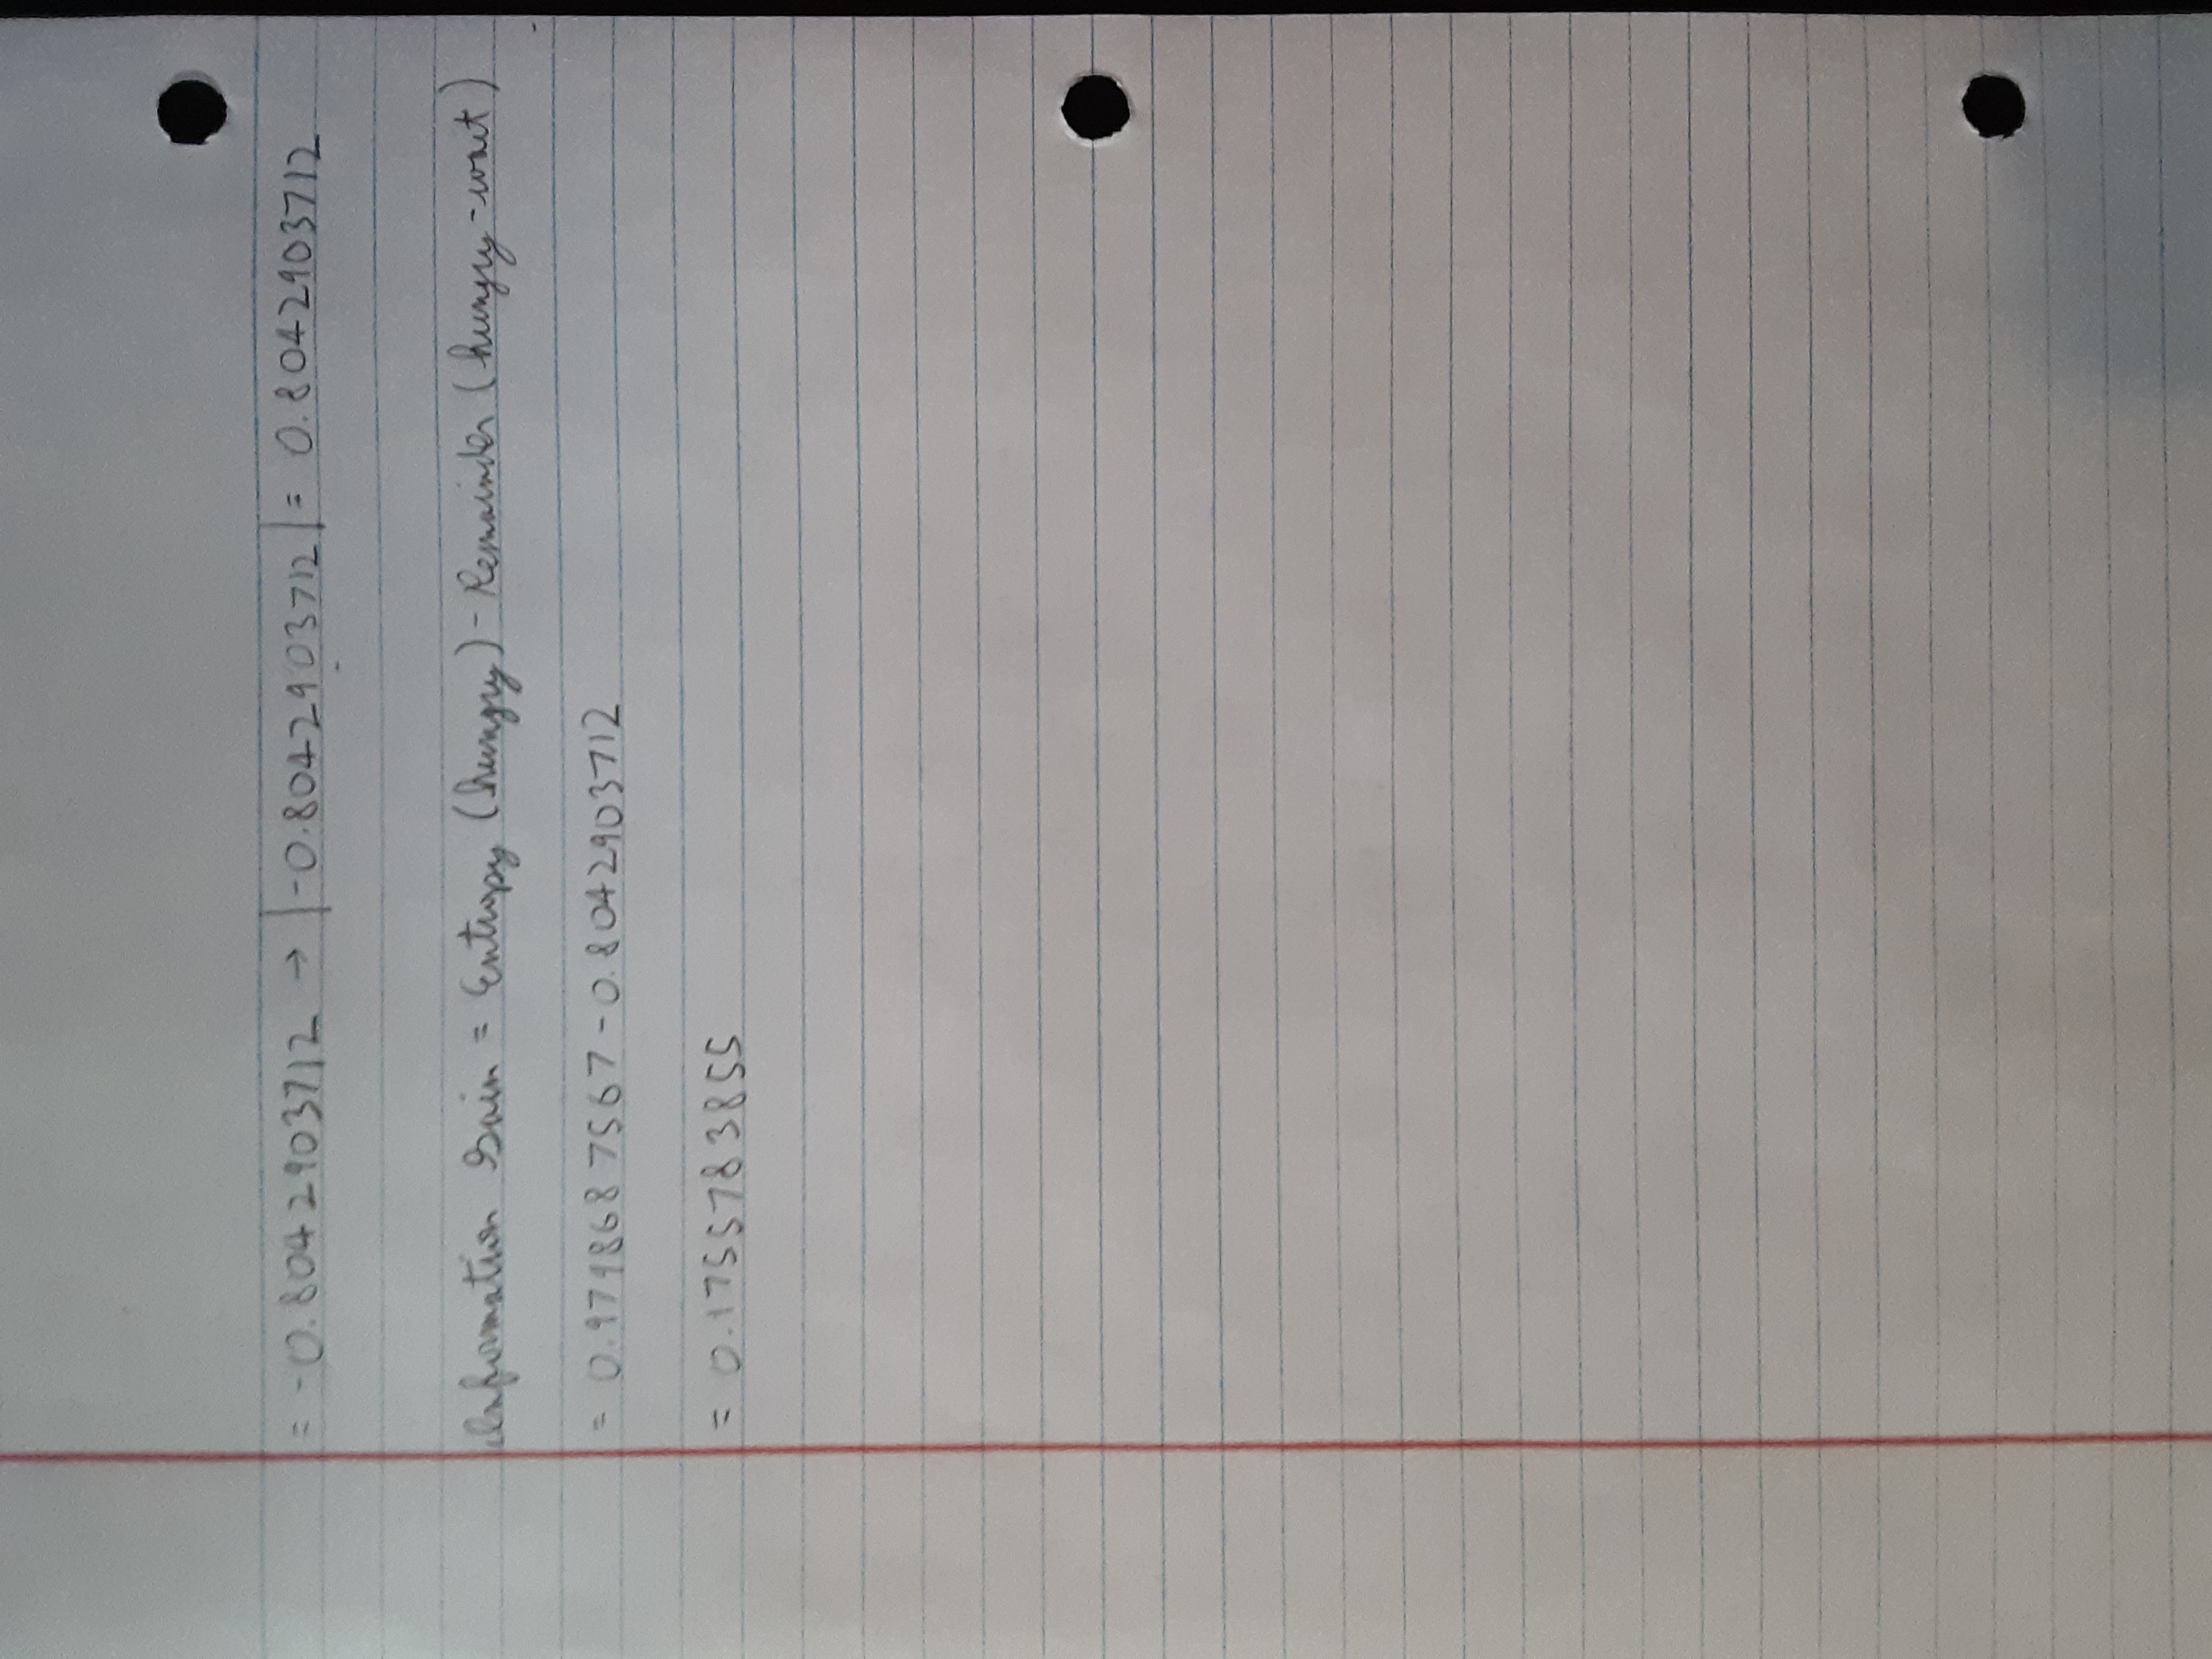 = -0.8042903712 → |-0.8042903712| = 0.8042903712
Information Gain = Entropy (hungry) - Remainder (hungry-wait)
= 0.9798687567 - 0.8042903712
= 0.1755783855